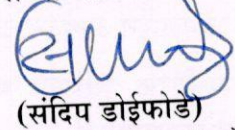 (संदिप डोईफोडे)